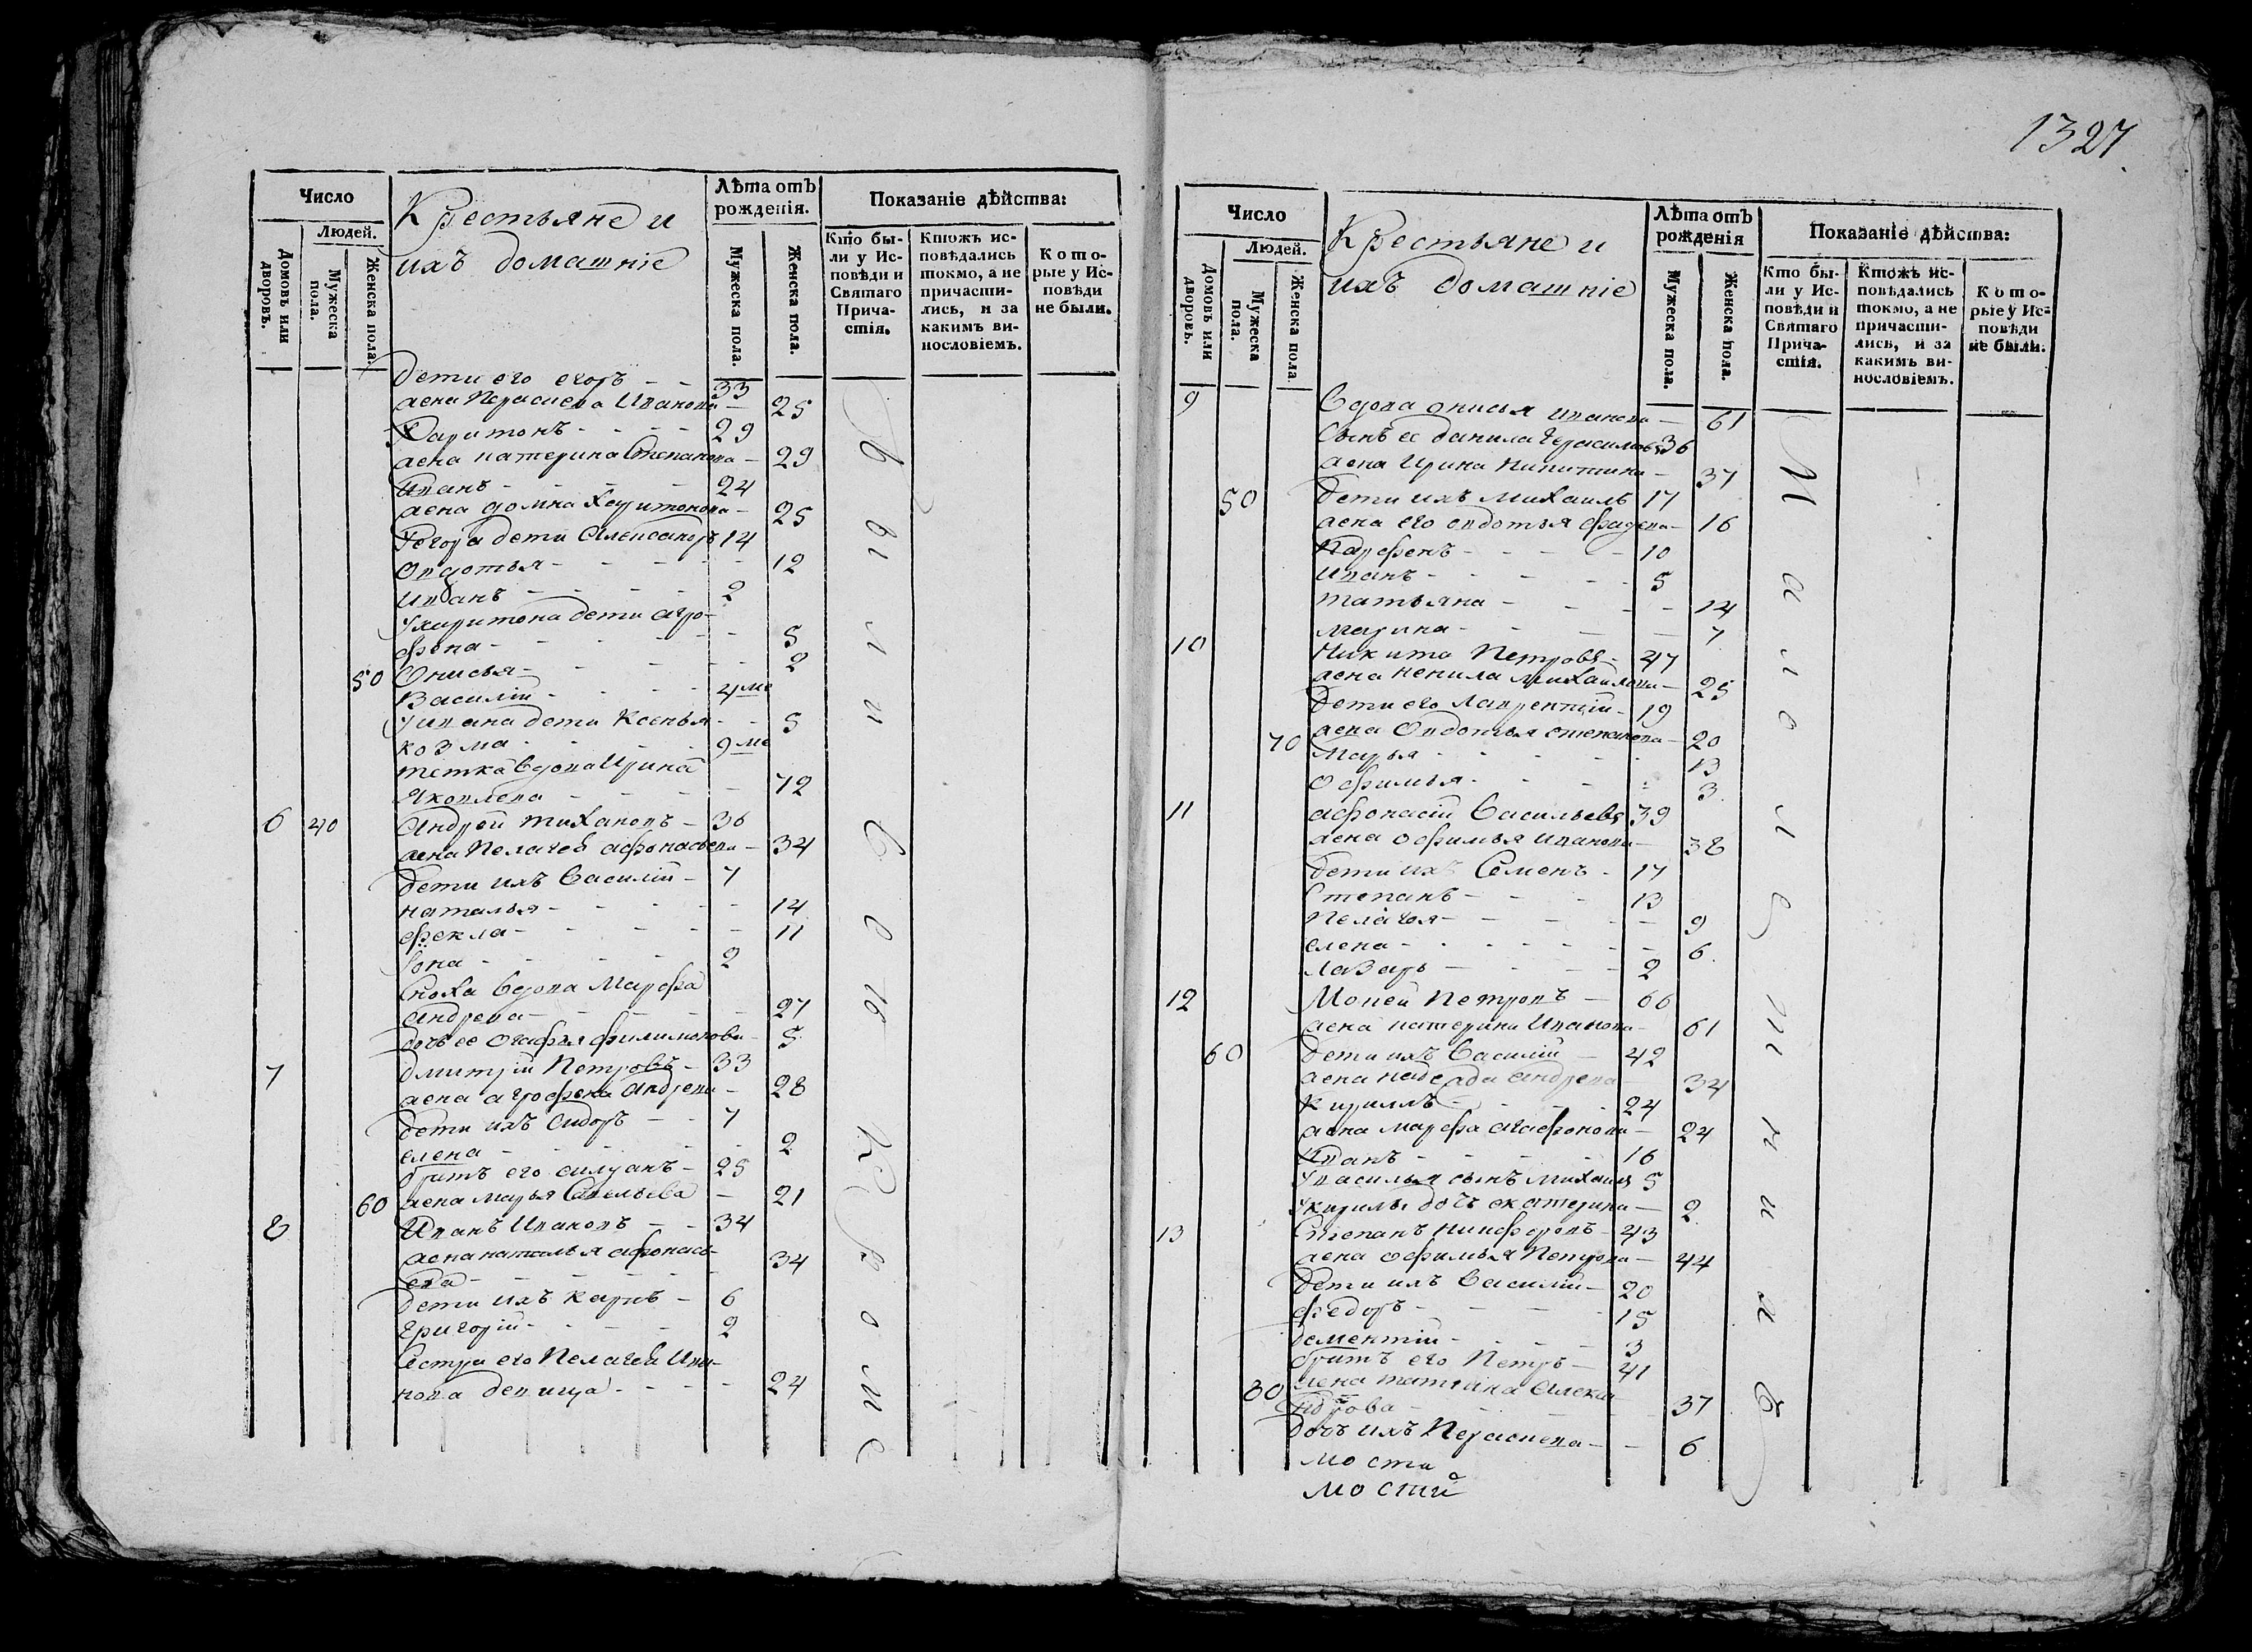 1327
Число
Людей.
Домовъ или дворовъ.
Мужеска пола.
Женска пола.
Крестьяне и
ихъ домашніе
Лѣта отъ
рожденія.
Мужеска пола.
Женска пола.
Показаніе дѣйства:
Кто бы-
ли у Ис-
повѣди и
Святаго
Прича-
стія.
Ктожъ ис-
повѣдались
токмо, а не
причасти-
лись, и за
какимъ ви-
нословіемъ.
Кото-
рые у Ис-
повѣди
не были.
дети его егоръ - - 33
жена Параскева Иванова - 25
Харитонъ - - - - 29
жена катерина Степанова - 29
Иванъ - - - - 24
жена домна Харитонова - 25
Уегора дети Александръ 14
Овдотья - - - - 12
Иванъ - - - - 2
Ухаритона дети агро-
фена - - - - 5
50 Онисья - - - - 2
Василій - - - - 4 ме
Уивана дети Ксенья - - 5
козма - - - - 9 ме
тетка вдова Ирина
Яковлева - - - - 72
6 40 Андрей тихановъ - 36
жена Пелагея афонасьева - 34
дети ихъ Василій - 7
наталья - - - - 14
фекла - - - - 11
Іона - - - - 2
Сноха вдова Марфа
андрева - - - - 27
дочь ее Огафья филимонова - 5
7 дмитрій Петровъ - 33
жена агрофена андрева - 28
дети ихъ сидоръ - - 7
елена - - - - 2
братъ его силуанъ - 25
60 жена марья Савельева - 21
8 Иванъ Ивановъ - - 34
жена наталья афонась-
ева - - - - 34
дети ихъ карпъ - 6
григорій - - - - 2
Сестра его Пелагея Ива-
нова девица - - - - 24
были
все
кроме
Число
Людей.
Домовъ или дворовъ.
Мужеска пола.
Женска пола
Крестьяне и
ихъ домашніе
Лѣта отъ
рожденія
Мужеска пола.
Женска пола.
Показаніе дѣйства:
Кто бы-
ли у Ис-
повѣди и
Святаго
Прича-
стія.
Ктожъ ис-
повѣдались
токмо, а не
причасти-
лись, и за
какимъ ви-
нословіемъ.
Кото-
рые у Ис-
повѣди
не были.
9 Вдова онисья иванова - 61
Сынъ ее данила Герасимовъ 36
жена Ирина никитина - 37
50 дети ихъ михаилъ 17
жена его овдотья фадева - 16
Парфенъ - - - - 10
Иванъ - - - - 5
татьяна - - - - 14
марина - - - - 7
10 Никита Петровъ - 47
жена ненила михайлова - 25
дети его Лаврентій - 19
жена Овдотья степанова - 20
70 Марья - - - - 13
Офимья - - - - 3
11 афонасій Васильевъ 39
жена офимья иванова - 38
дети ихъ Семенъ - 17
Степанъ - - - 13
Пелагея - - - - 9
елена - - - - 6
Лазарь - - - - 2
12 Мокей Петровъ - 66
жена катерина Иванова - 61
60 дети ихъ Василій - 42
жена надежда андрева - 34
Кирилъ - - - - 24
жена марфа агафонова - 24
Иванъ - - - - 16
Увасилья сынъ михаилъ 5
Укирилы дочь екатерина - 2
13 Степанъ никифоровъ - 43
жена офимья Петрова - 44
дети ихъ Василій - 20
федоръ - - - - 15
дементій - - - - 3
братъ его Петръ - 41
80 жена татьяна алекса-
ндрова - - - 37
дочь ихъ Параскева - - 6
мости
мости
малолетнихъ